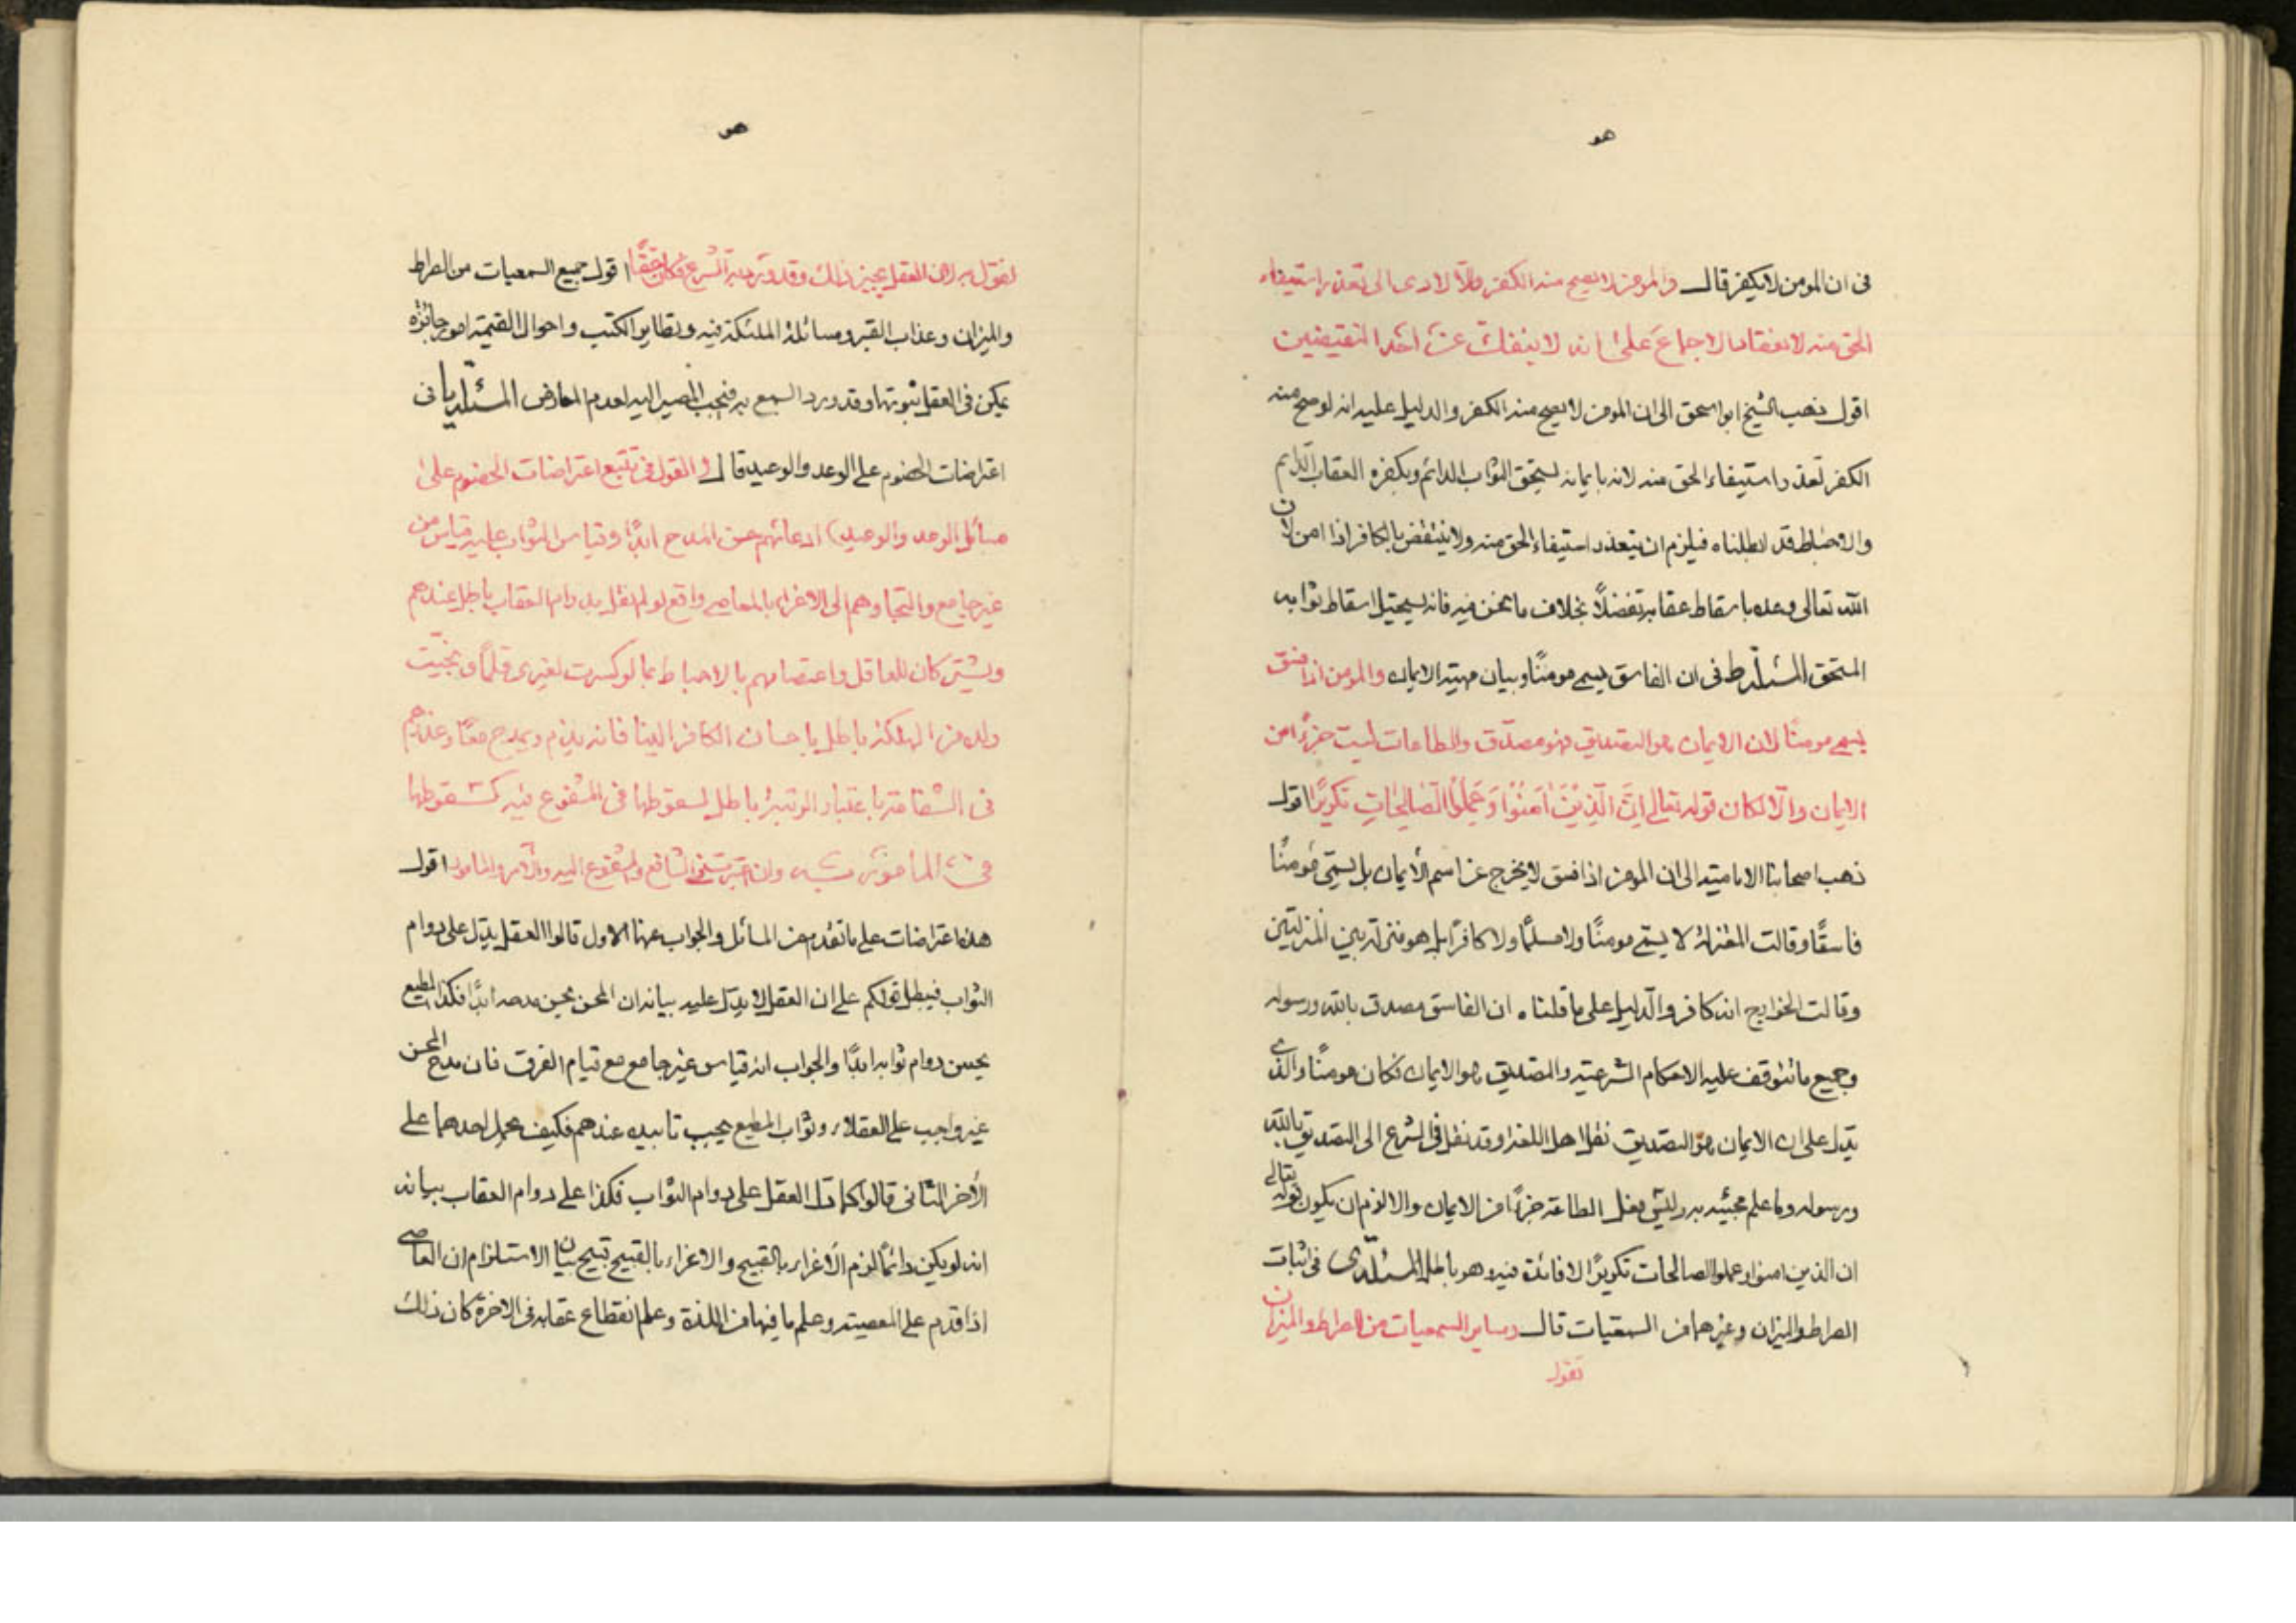 هو
فى ان المومن لا يكفر قال والمومن لا يصح منه الكفر والّا لادى الى تعذر استيفاء
الحق منه لانعقاد الاجماع على انه لا ينفك عن احد النقيضين
اقول ذهب الشيخ ابو اسحق الى ان المومن لا يصح منه الكفر والدليل عليه انه لو صح منه
الكفر لتعذر استيفاء الحق منه لانه بايمانه يستحق الثواب الدائم وبكفره العقاب الدايم
والاحباط قد ابطلناه فيلزم ان يتعذر استيفاء الحق منه ولا ينتقض بالكافر اذا امن لان
الله تعالى وعده باسقاط عقابه تفضلاً بخلاف ما نحن فيه فانه يستحيل اسقاط ثوابه
المستحق المسئلة ط فى ان الفاسق يسمى مومنًا وبيان مهية الايمان والمومن اذا فسق
يسمى مومنًا لان الايمان هو التصديق فهو مصدق والطاعات ليست جزءًا من
الايمان والّا لكان قوله تعالى اِنَّ الَّذِيْنَ اٰمَنُوْا وَعَمِلُوا الصَّالِحَاتِ تكريرًا اقول
ذهب اصحابنا الامامية الى ان المومن اذا فسق لا يخرج عن اسم الايمان بل يسمى مومنًا
فاسقًا وقالت المعتزلة لا يسمى مومنًا ولا مسلمًا ولا كافرًا بل هو منزلة بين المنزلتين
وقالت الخوارج انه كافر والدليل على ما قلناه ان الفاسق مصدق بالله ورسوله
وجميع ما تتوقف عليه الاحكام الشرعية والتصديق هو الايمان فكان مومنًا والذى
يدل على ان الايمان هو التصديق نقل اهل اللغة وقد نقل فى الشرع الى التصديق بالله
وبرسوله وما علم مجيئه به وليس فعل الطاعة جزءًا من الايمان والا لزم ان يكون قوله تعالى
ان الذين امنوا وعملوا الصالحات تكريرًا لا فائدة فيه وهو باطل المسئلة ى فى اثبات
الصراط والميزان وغيرهما من السمعيات قال وساير السمعيات من الصراط والميزان
نقول
هو
نقول به لان العقل يجيز ذلك وقد ورد به الشرع فكان حقًّا اقول جميع السمعيات من الصراط
والميزان وعذاب القبر ومسائلة الملئكة فيه وتطاير الكتب واحوال القيمة امور جائزة
يمكن فى العقل ثبوتها وقد ورد السمع به فيجب المصير اليه لعدم المعارض المسئلة يا فى
اعتراضات الخصوم على الوعد والوعيد قال والقول فى تتبع اعتراضات الخصوم على
مسائل الوعد والوعيد ادعائهم حسن المدح ابدًا وقياس الثواب عليه قياس من
غير جامع والتجاوهم الى الاغراء بالمعاصى واقع لو لم نقل بدوام العقاب باطل عندهم
ويشتركان للعاقل واعتصامهم بالاحباط بما لو كسرت لغيرى قلمًا ونجيت
ولده من الهلكة باطل باحسان الكافر الينا فانه يذم ويمدح معًا وعندهم
فى الشفاعة باعتبار الرتبة باطل لسقوطها فى المشفوع فيه كسقوطها
فى المامور به وان اعتبرت فى الشافع والمشفوع اليه والآمر والمامور اقول
هذه اعتراضات على ما تقدم من المسائل والجواب عنها الاول قالوا العقل يدل على دوام
الثواب فيبطل قولكم على ان العقل لا يدل عليه بيانه ان المحسن يحسن مدحه ابدًا فكذا المطيع
يحسن دوام ثوابه ابدًا والجواب انه قياس غير جامع مع قيام الفرق فان مدح المحسن
غير واجب على العقلاء وثواب المطيع يجب تابيده عندهم فكيف يحمل احدهما على
الأخر الثانى قالوا كما دل العقل على دوام الثواب فكذا على دوام العقاب بيانه
انه لو يكن دائمًا لزم الاغراء بالقبيح والاغراء بالقبيح قبيح بيان الاستلزام ان العاصى
اذا قدم على المعصية وعلم ما فيها من اللذة وعلم انقطاع عقابه فى الاخرة كان ذلك